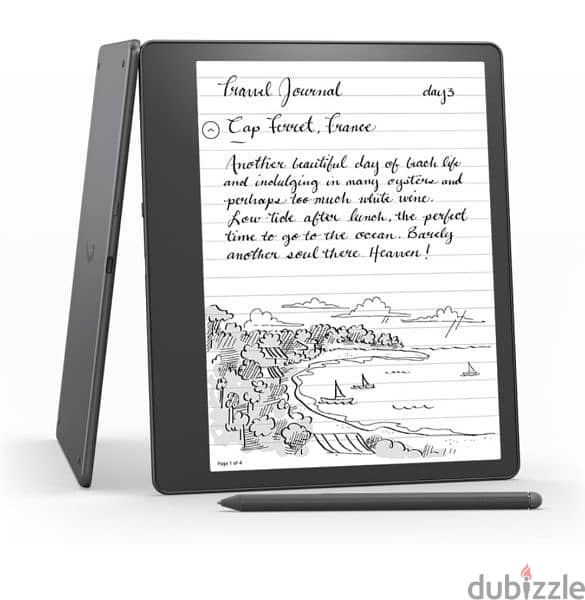 Travel Journal day3
Cap Ferret, France
Another beautiful day of beach life
and indulging in many oysters and
perhaps too much white wine.
Low tide after lunch, the perfect
time to go to the ocean. Barely
another soul there Heaven!
Page 1 of 4
dubizzle